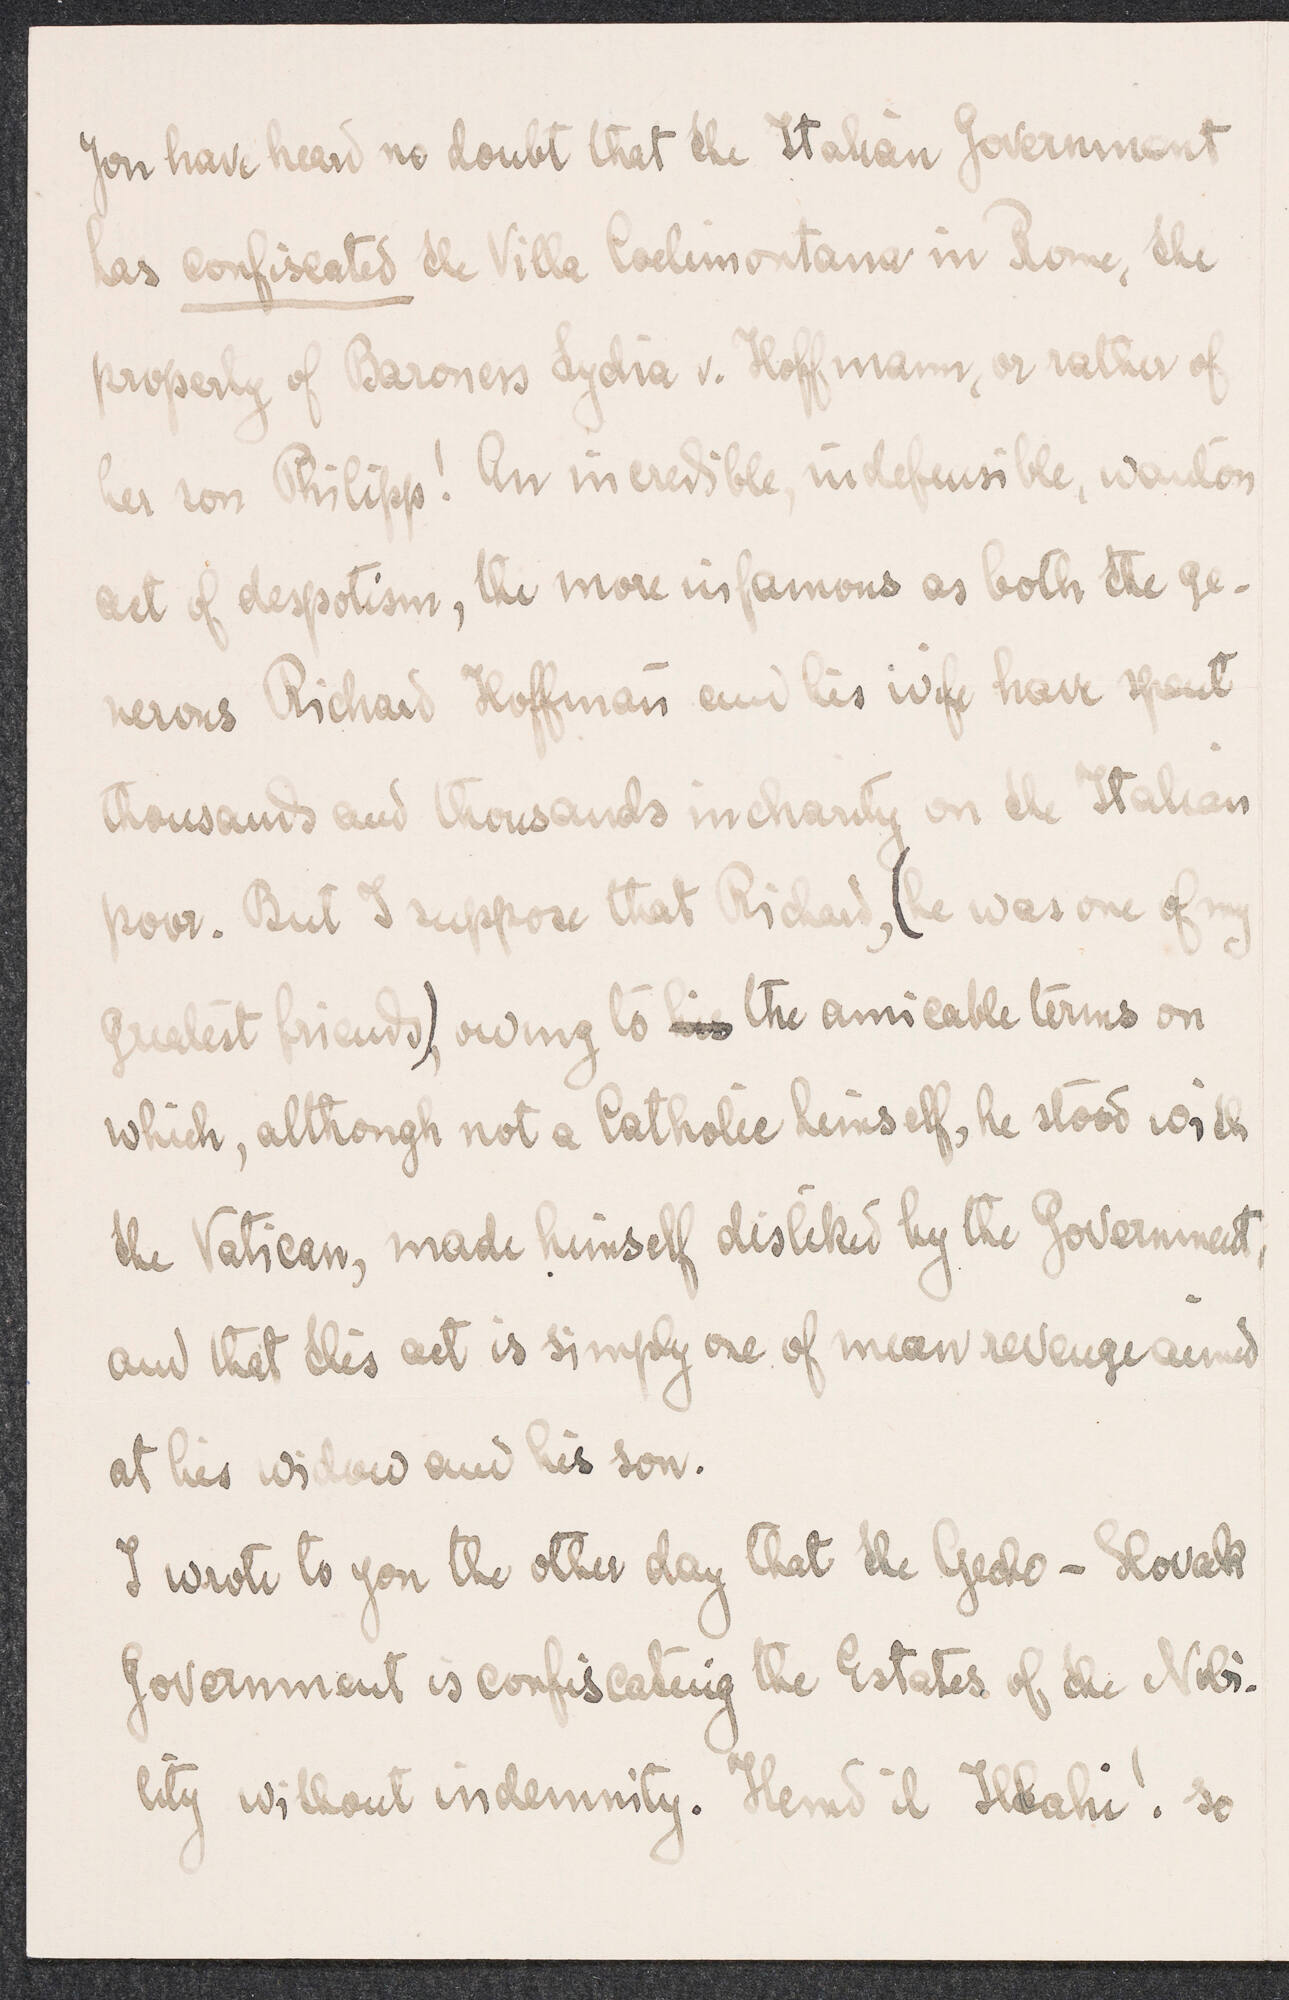 You have heard no doubt that the Italian Government
has confiscated the Villa Coelimontana in Rome, the
property of Baroness Lydia v. Hoffmann, or rather of
her son Philipp! An incredible, indefensible, wanton
act of despotism, the more infamous as both the ge-
nerous Richard Hoffman̄ and his wife have spent
thousands and thousands in charity on the Italian
poor. But I suppose that Richard, (he was one of my
greatest friends), owing to his the amicable terms on
which, although not a Catholic himself, he stood with
the Vatican, made himself disliked by the Government,
and that this act is simply one of mean revenge aimed
at his widow and his son.
I wrote to you the other day that the Czecho-Slovak
Government is confiscating the Estates of the Nobi-
lity without indemnity. Hemd il Illahi! So